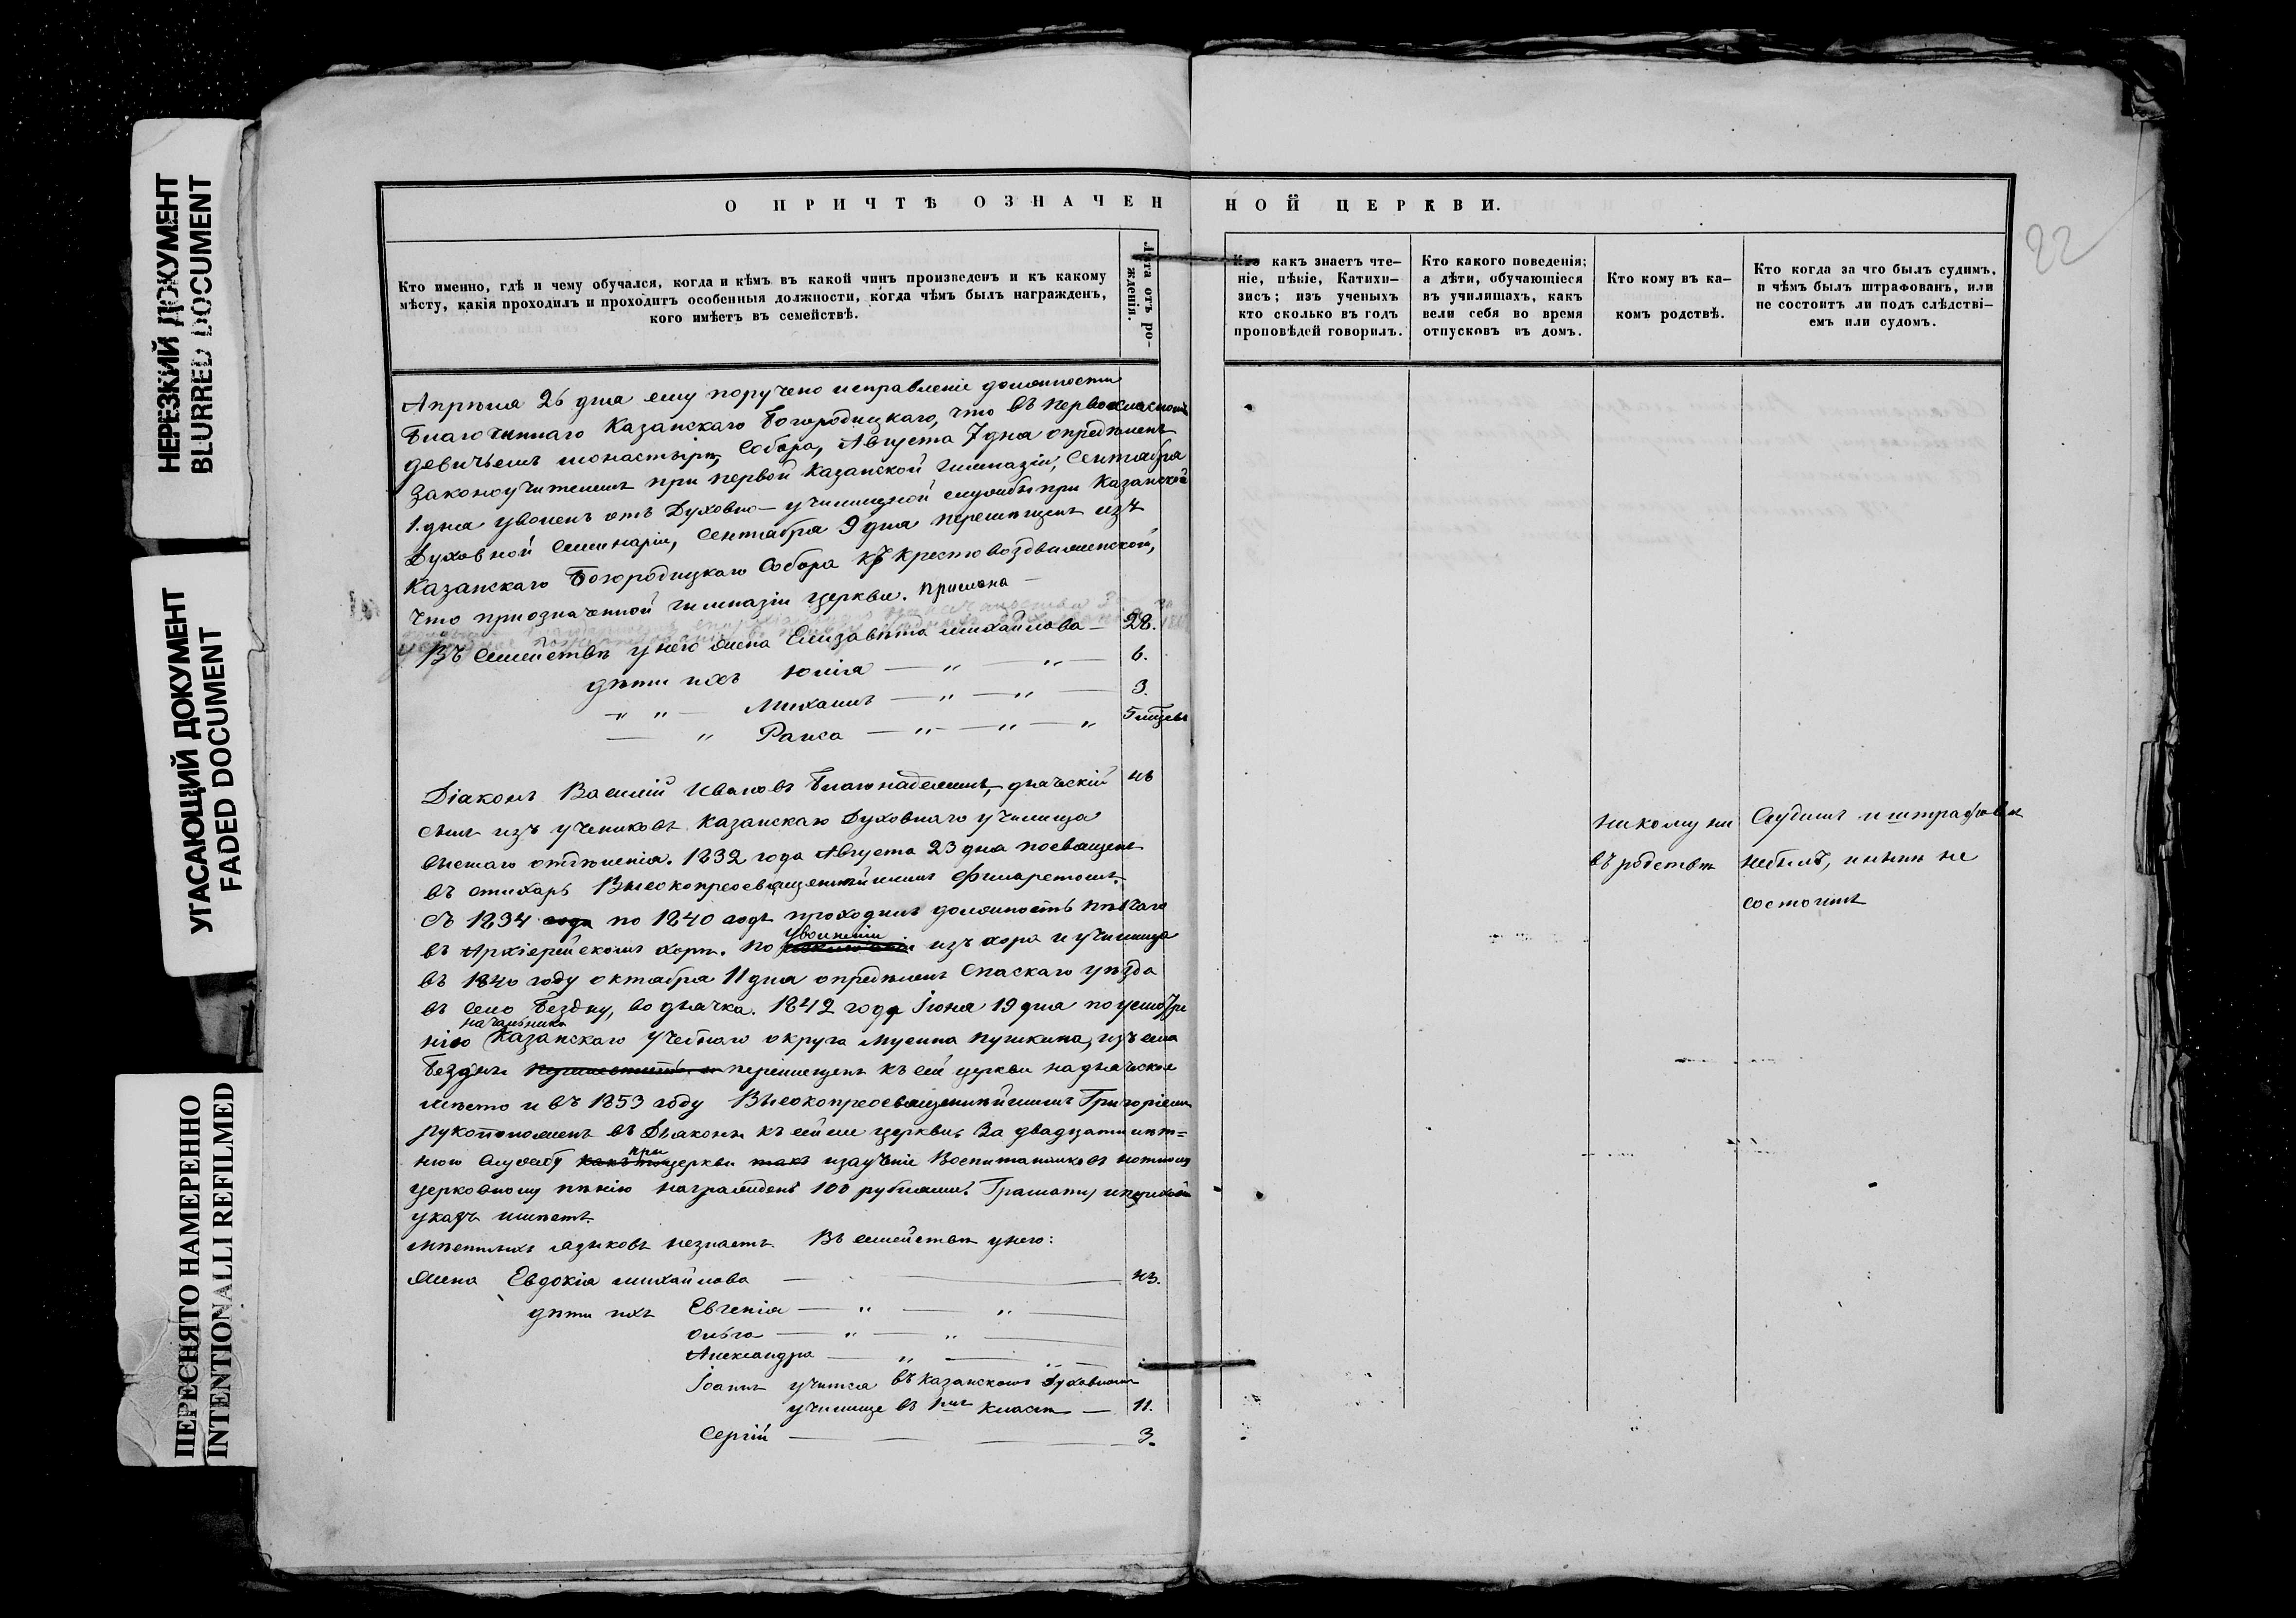 НЕРЕЗКИЙ ДОКУМЕНТ
BLURRED DOCUMENT
УГАСАЮЩИЙ ДОКУМЕНТ
FADED DOCUMENT
ПЕРЕСНЯТО НАМЕРЕННО
INTENTIONALLI REFILMED
О ПРИЧТѢ ОЗНАЧЕННОЙ ЦЕРКВИ.
22
Кто именно, гдѣ и чему обучался, когда и кѣмъ въ какой чинъ произведенъ и къ какому
мѣсту, какія проходилъ и проходитъ особенныя должности, когда чѣмъ былъ награжденъ,
кого имѣетъ въ семействѣ.
Лѣта отъ ро-
жденія.
Кто какъ знаетъ чте-
ніе, пѣніе, Катихи-
зисъ; изъ ученыхъ
кто сколько въ годъ
проповѣдей говорилъ.
Кто какого поведенія;
а дѣти, обучающіеся
въ училищахъ, какъ
вели себя во время
отпусковъ въ домъ.
Кто кому въ ка-
комъ родствѣ.
Кто когда за что былъ судимъ,
и чѣмъ былъ штрафованъ, или
не состоитъ ли подъ слѣдстві-
емъ или судомъ.
Апрѣля 26 дня ему поручено исправленіе должности
Благочиннаго Казанскаго Богородицкаго, что въ первоклассномъ
девичьемъ монастырѣ, Собора, Августа 7 дня опредѣленъ
Законоучителемъ при первой Казанской гимназіи, Сентября
1. дня уволенъ отъ Духовно-училищной службы при Казанской
Духовной Семинаріи, Сентября 9 дня перемѣщенъ изъ
Казанскаго Богородицкаго Собора къ Крестовоздвиженской,
что приозначенной гимназіи церкви.
Въ Семействѣ у него жена Елизавѣта Михайлова — 28.
дѣти ихъ Юлія — " — " — 6.
— " " — Михаилъ — " — " — 3.
— " Раиса — " — " — " 5 мѣсяц.
Діаконъ Василій Ивановъ Благонадеждинъ, дьяческій 43
сынъ изъ учениковъ Казанскаго Духовнаго училища
высшаго отдѣленія. 1832 года Августа 23 дня посвященъ
въ стихарь Высокопреосвященнѣйшимъ Филаретомъ.
Съ 1834 года по 1840 годъ проходилъ должность пѣвчаго
въ Архіерейскомъ хорѣ. По увольненіи изъ хора и училища
въ 1840 году октября 11 дня опредѣленъ Спаскаго уѣзда
въ село Бездну, во дьячка. 1842 года Іюня 19 дня по усмотре
нію начальника Казанскаго Учебнаго округа Мусина Пушкина, изъ села
Бездны перемещенъ къ сей церкви на дьяческое
мѣсто и въ 1853 году Высокопреосвященнѣйшимъ Григоріемъ
рукоположенъ въ Діаконы къ сейже церкви. За двадцатилѣт=
нюю службу при церкви и заученіе Воспитанниковъ нотному
церковному пѣнію награжденъ 100 рублями. Грамату
указъ имѣетъ.
мѣстныхъ языковъ незнаетъ. Въ семействѣ у него:
Жена Евдокія Михайлова — 43.
дѣти ихъ Евгенія — " — " —
Ольга — " — " —
Александра — " — " —
Іоаннъ учится въ Казанскомъ Духовномъ
училище въ 1мъ классѣ — 11.
Сергій — 3.
никому ни
въ родствѣ
Судимъ и штрафованъ
небылъ, и нынѣ не
состоитъ